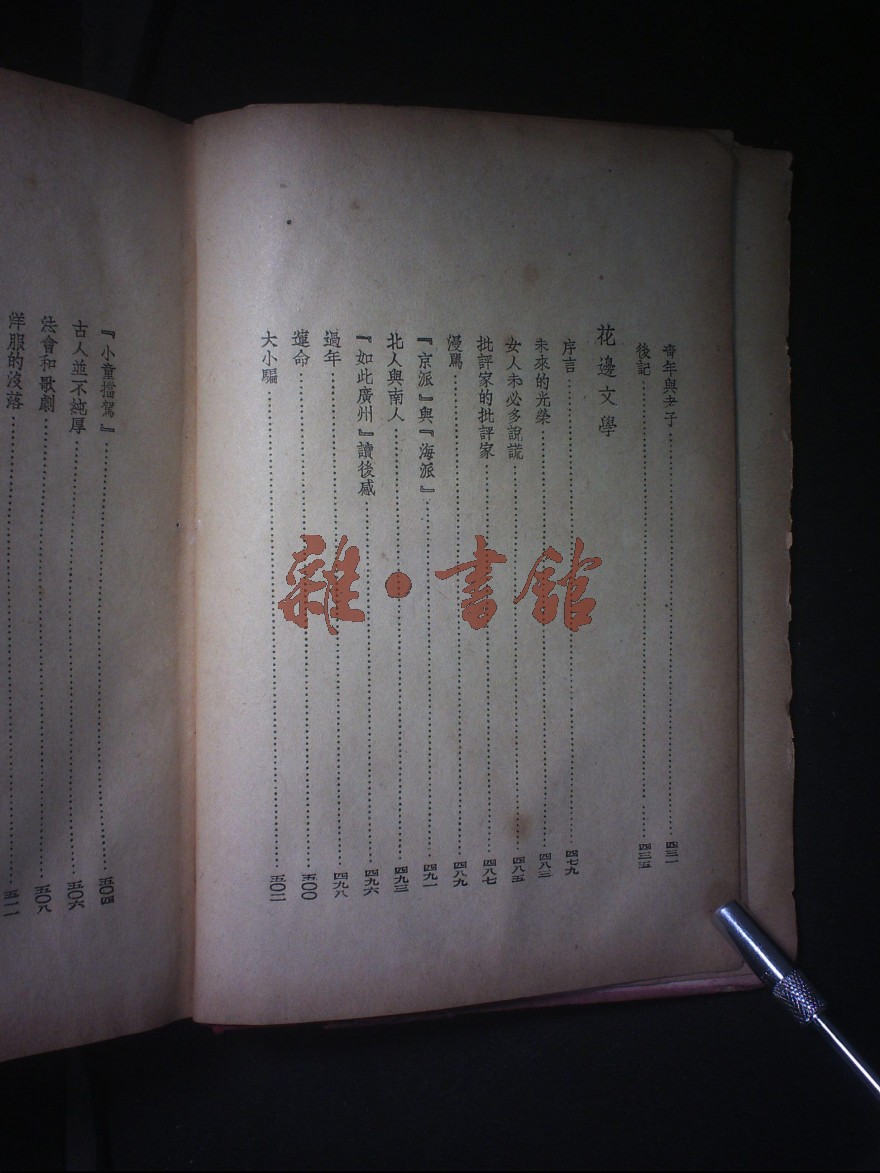 青年與老子……四三一
後記……四三五
花邊文學
序言……四七九
未來的光榮……四八三
女人未必多說謊……四八五
批評家的批評家……四八七
漫罵……四八九
『京派』與『海派』……四九一
北人與南人……四九三
『如此廣州』讀後感……四九六
過年……四九八
運命……五〇〇
大小騙……五〇二
『小童擋駕』……五〇四
古人並不純厚……五〇六
法會和歌劇……五〇八
洋服的沒落……五一一
雜·書館